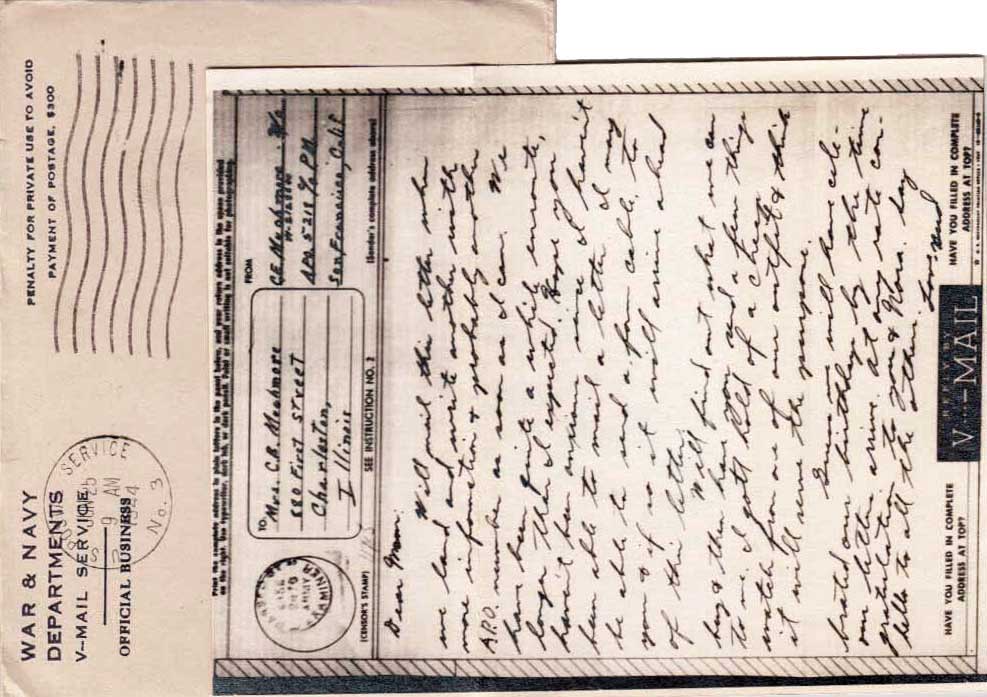 WAR & NAVY
DEPARTMENTS
V-MAIL SERVICE
OFFICIAL BUSINESS
PENALTY FOR PRIVATE USE TO AVOID
PAYMENT OF POSTAGE, $300
SERVICE
9 AM
1944
No. 3
Print the complete address in plain letters in the panel below, and your return address in the space provided
on the right. Use typewriter, dark ink, or dark pencil. Faint or small writing is not suitable for photographing.
TO
Mrs. C.B. Meshmore
880 First Street
Charleston,
Illinois
FROM
C.E. Meshmore
APO 5218 % P.M.
San Francisco, Calif
(CENSOR'S STAMP)
SEE INSTRUCTION NO. 2
(Sender's complete address above)
ARMY
EXAMINER
Dear Mom:
Will mail this letter when
we land and write another with
more information & probably another
A.P.O. number as soon as I can. We
have been quite a while enroute,
longer than I expected. Hope you
haven't been anxious since I haven't
been able to mail a letter. I may
be able to send a form cable to
you & if so it will arrive ahead
of this letter.
Will find out what we can
buy & then have you send a few things
to me. I got hold of a cheap
watch from one of our outfit & think
it will serve the purpose.
will have cele-
brated our birthdays by the time
our letters arrive. at any rate con-
gratulations to you & Nora. Say
hello to all the others.
Love,
HAVE YOU FILLED IN COMPLETE
ADDRESS AT TOP?
REPLY BY
V···-MAIL
HAVE YOU FILLED IN COMPLETE
ADDRESS AT TOP?